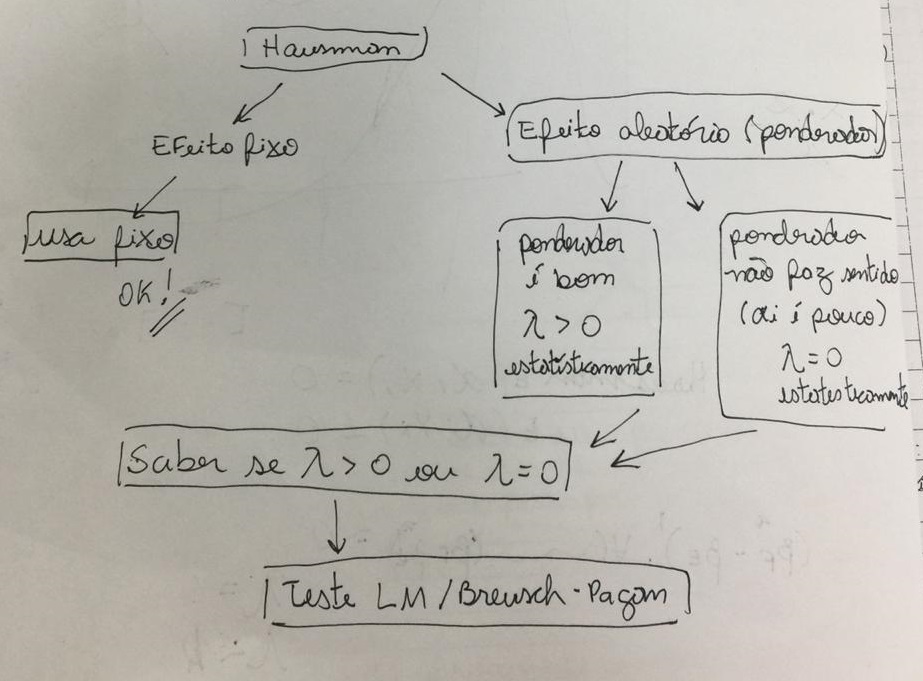 Hausman
Efeito fixo
Efeito aleatório (ponderador)
usa fixo
OK!
ponderador
é bom
λ > 0
estatísticamente
ponderador
não faz sentido
(αi é pouco)
λ = 0
estatesticamente
Saber se λ > 0 ou λ = 0
Teste LM/Breusch-Pagan